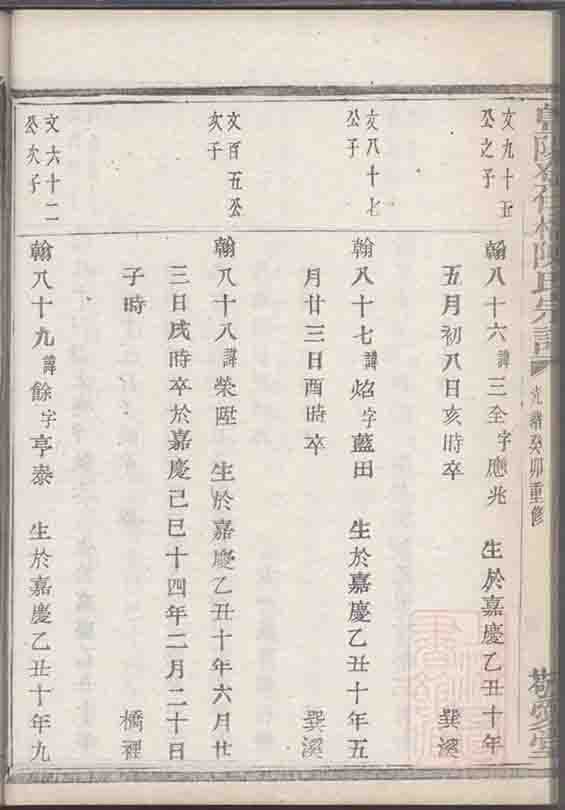 陳氏宗譜
光緒癸卯重修
敬愛堂
文九十五
公之子
翰八十六諱三全字應兆 生於嘉慶乙丑十年
五月初八日亥時卒 巽溪
文八十七
公子
翰八十七諱焰字藍田 生於嘉慶乙丑十年五
月廿三日酉時卒 巽溪
文百五公
次子
翰八十八諱榮陞 生於嘉慶乙丑十年六月廿
三日戌時卒於嘉慶己巳十四年二月二十日
子時 橋裡
文六十二
公次子
翰八十九諱餘字亨泰 生於嘉慶乙丑十年九